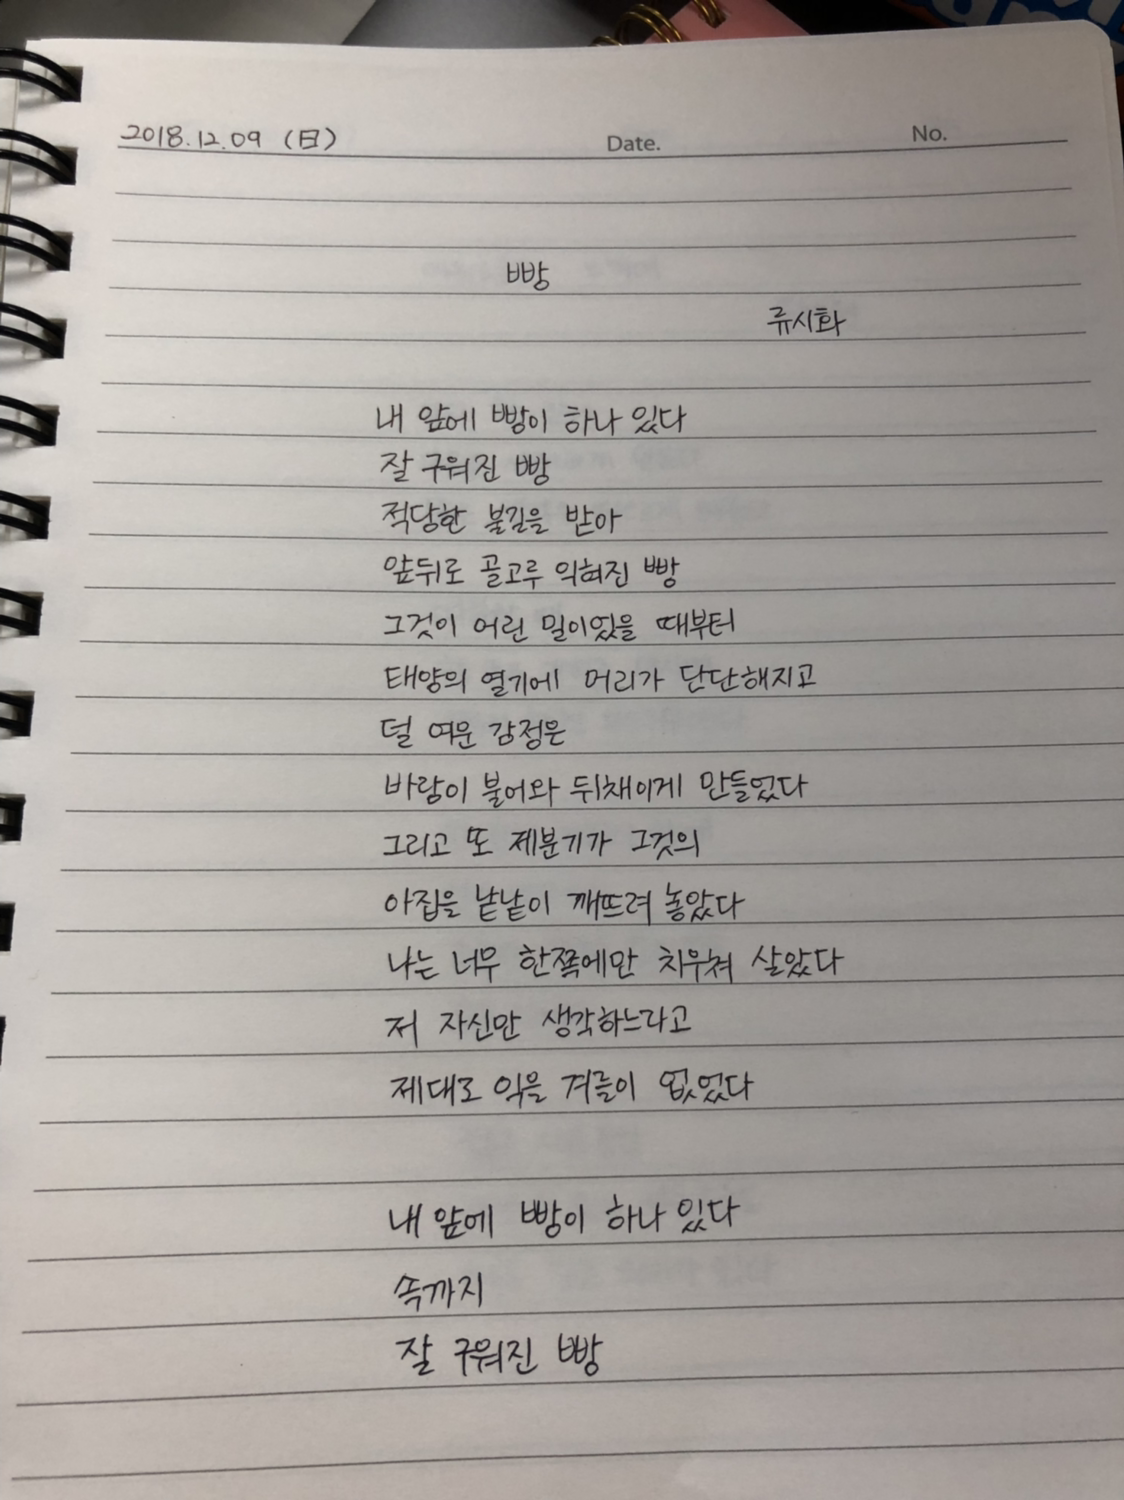 2018.12.09 (日) Date. No.
빵
류시화
내 앞에 빵이 하나 있다
잘 구워진 빵
적당한 불길을 받아
앞뒤로 골고루 익혀진 빵
그것이 어린 밀이었을 때부터
태양의 열기에 머리가 단단해지고
덜 여문 감정은
바람이 불어와 뒤채이게 만들었다
그리고 또 제분기가 그것의
아집을 낱낱이 깨뜨려 놓았다
나는 너무 한쪽에만 치우쳐 살았다
저 자신만 생각하느라고
제대로 익을 겨를이 없었다
내 앞에 빵이 하나 있다
속까지
잘 구워진 빵